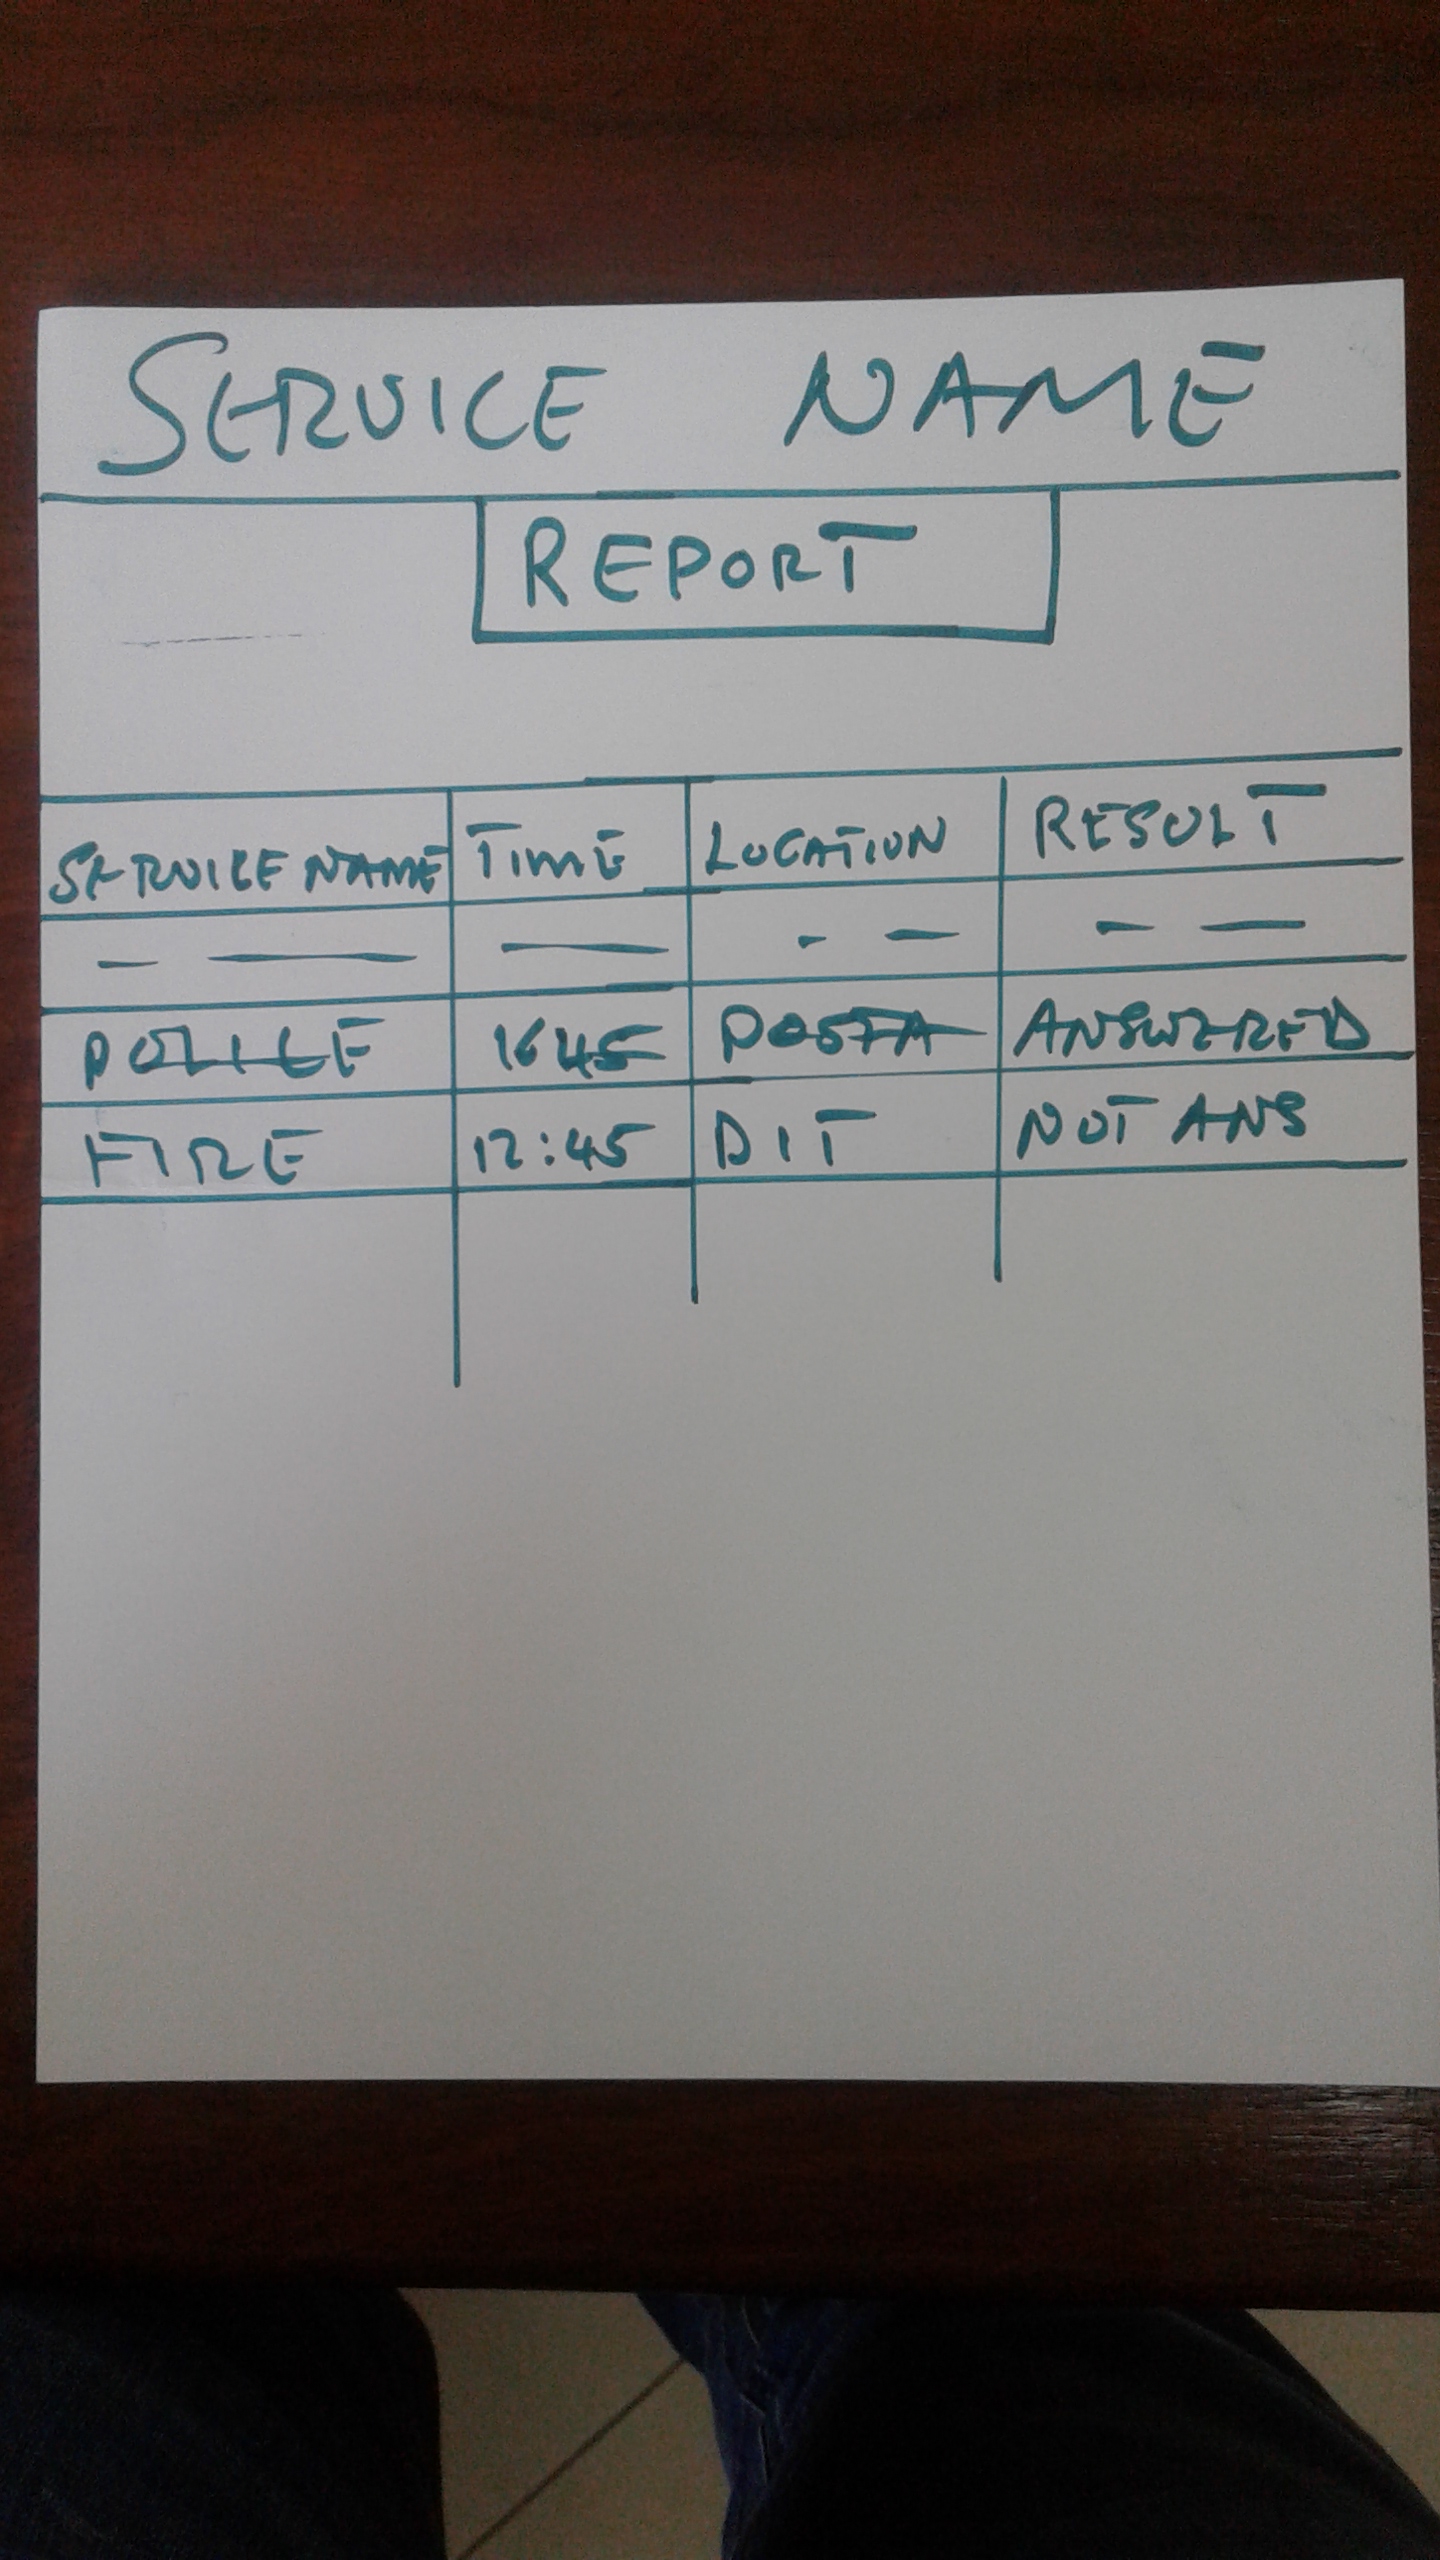 SERVICE NAME
REPORT
SERVICE NAME TIME LOCATION RESULT
- — — - — - —
POLICE 1645 POSTA ANSWERED
FIRE 12:45 DIT NOT ANS